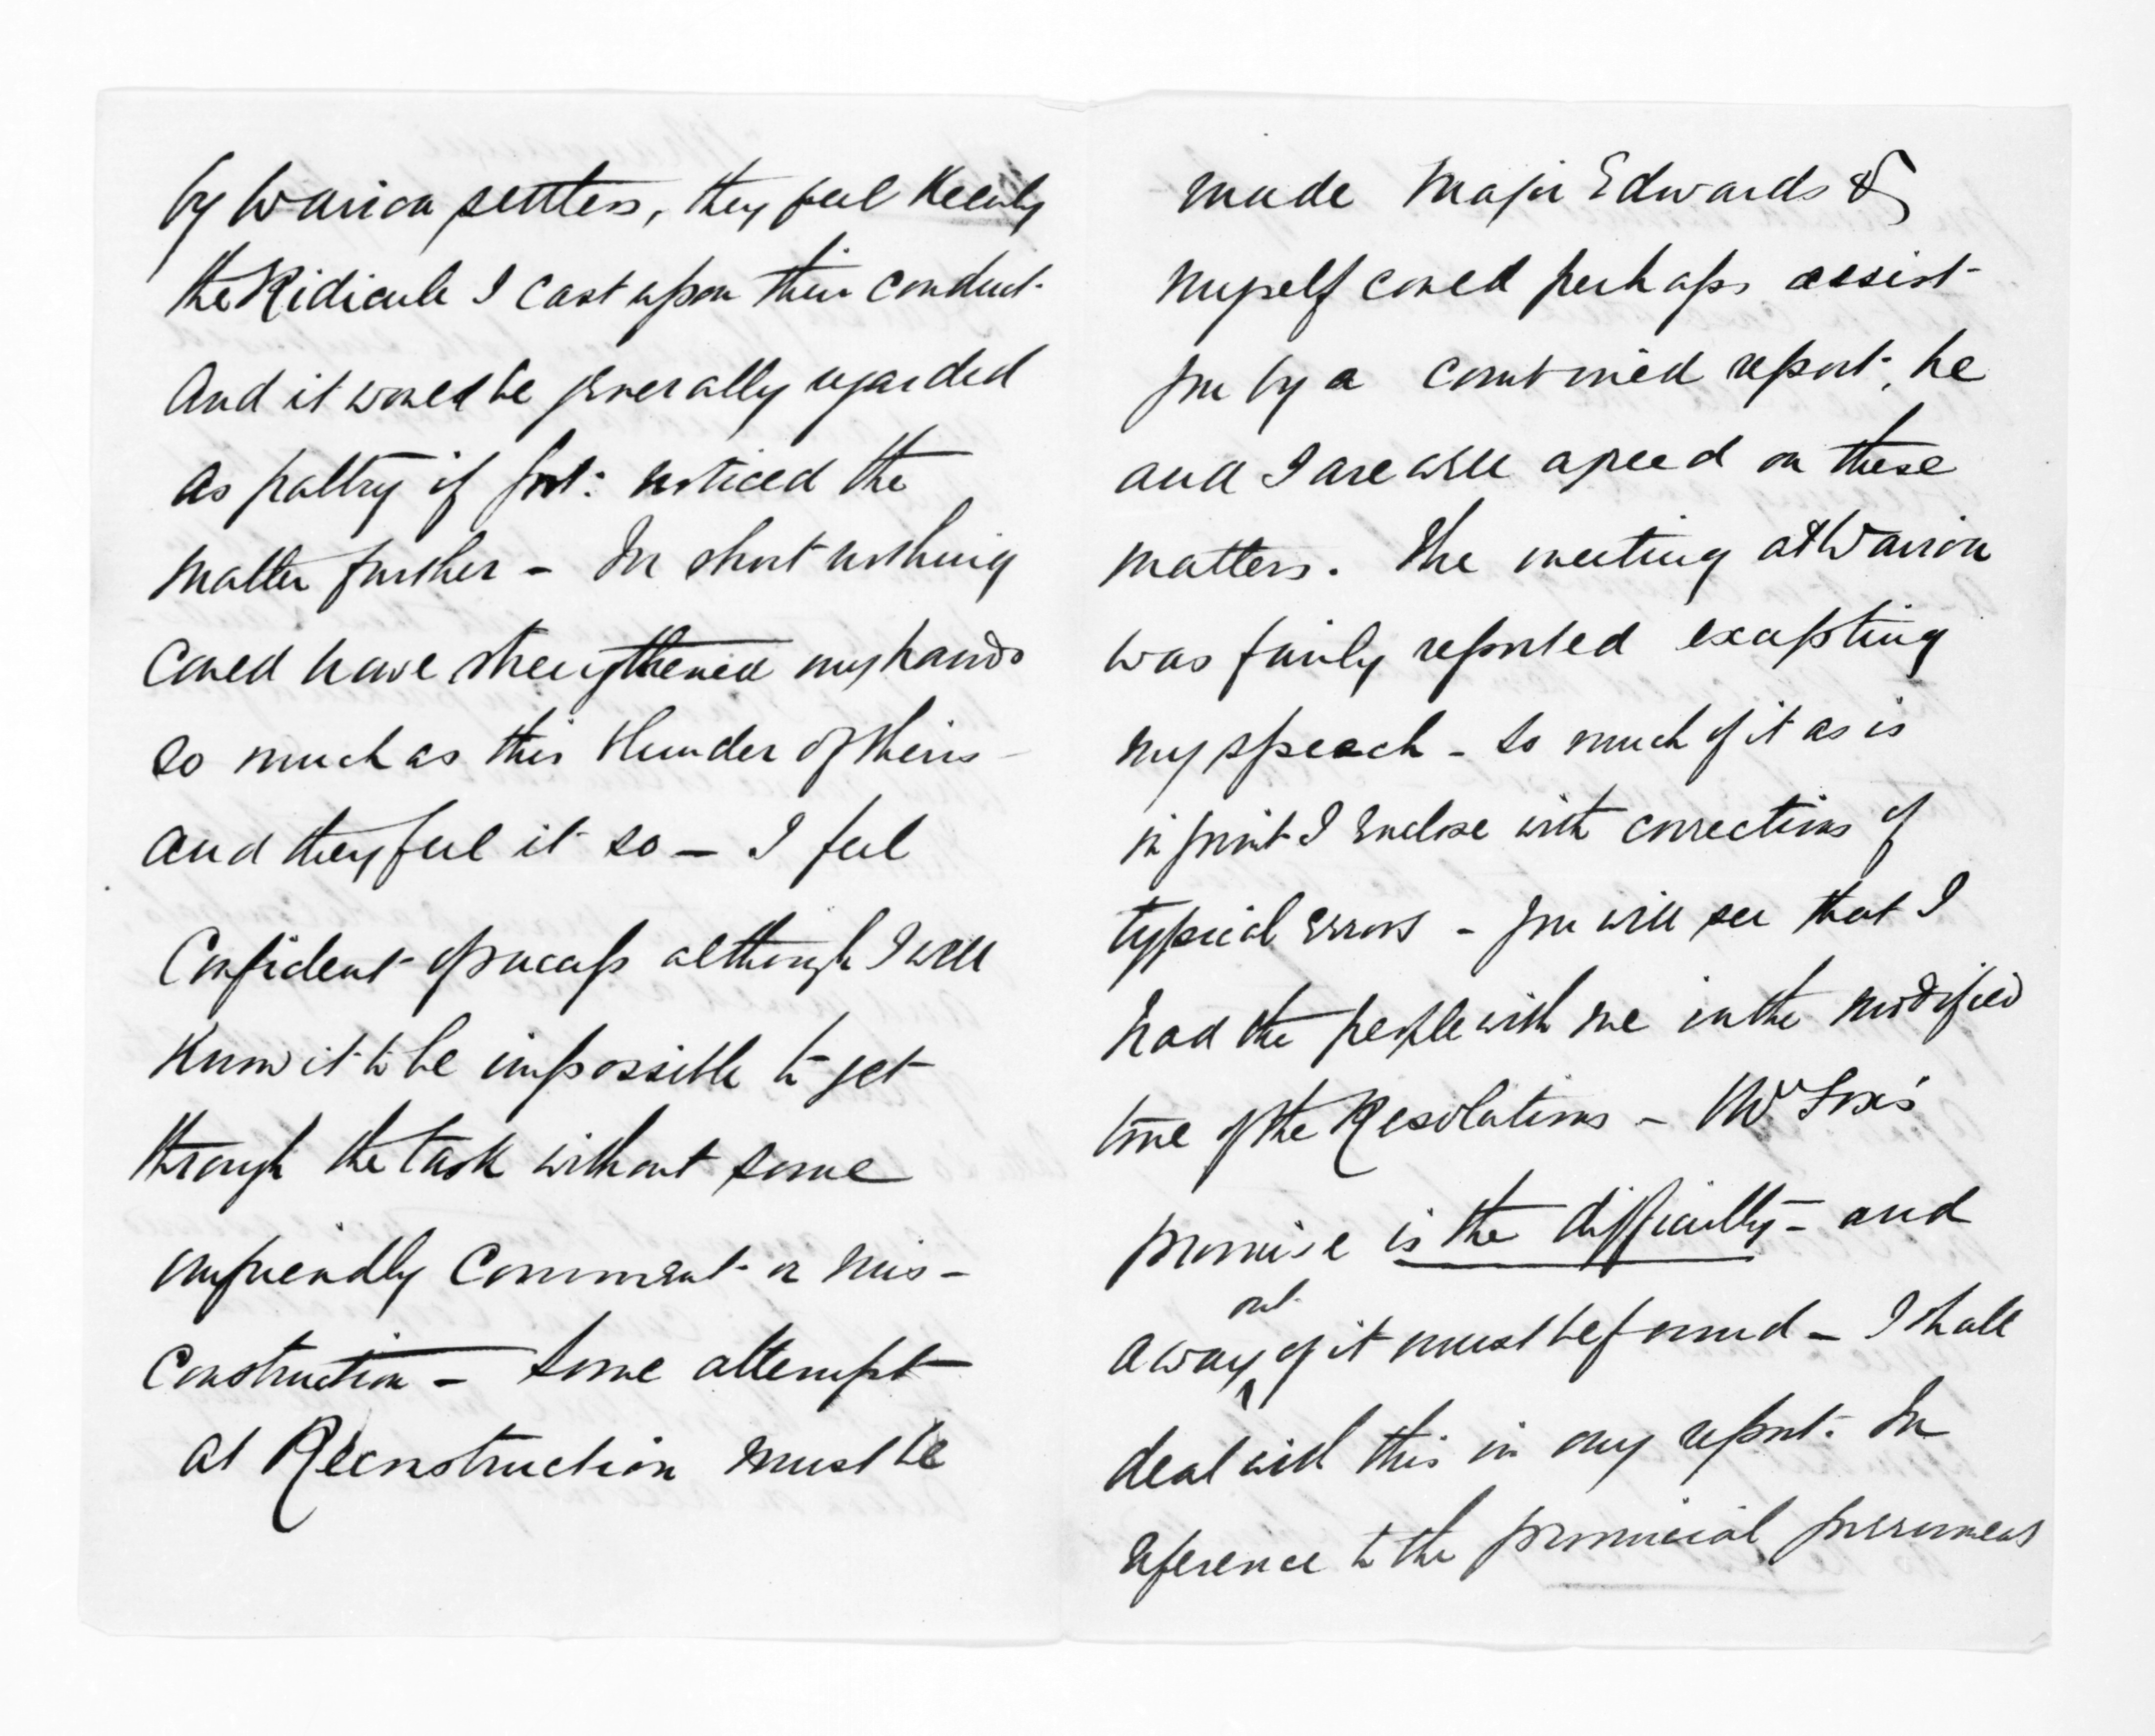 by Wairoa settlers, they feel Keenly
the Ridicule I cast upon their conduct.
And it would be generally regarded
as paltry if Govt: noticed the
matter further – In short nothing
could have strengthened my hands
so much as this blunder of theirs –
and they feel it so – I feel
Confident of success although I well
know it to be impossible to get
through the task without some
unfriendly Comment or mis–
Construction – Some attempt
at Reconstruction must be
made Major Edwards &
myself could perhaps assist
you by a combined report, he
and I are well agreed on these
matters. The meeting at Wairoa
was fairly reported excepting
my speech – so much of it as is
in print I enclose with corrections of
typical errors – you will see that I
had the people with me in the modified
tone of the Resolutions – Mr Fox's
promise is the difficulty – and
a way out of it must be found – I shall
deal with this in my report. In
reference to the provincial government